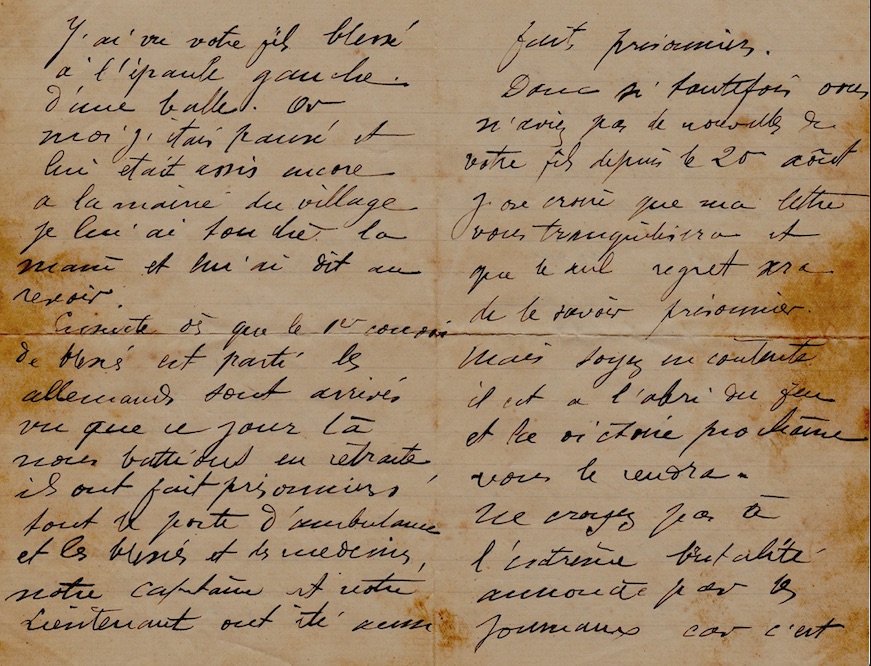 J'ai vu votre fils blessé
à l'épaule gauche.
d'une balle. Or
moi j'étais pansé et
lui etait assis encore
a la mairie du village
je lui ai touché la
main et lui ai dit au
revoir.
Ensuite dès que le 1er convoi
de blessés est parti les
allemands sont arrivés
vu que ce jour là
nous battions en retraite
ils ont fait prisonniers
tout le poste d'ambulance
et les blessés et les medecins,
notre capitaine et notre
Lieutenant ont été aussi
faits prisonniers.
Donc si toutefois vous
n'aviez pas de nouvelles de
votre fils depuis le 20 août
j'ose croire que ma lettre
vous tranquilisera et
que le seul regret sera
de le savoir prisonnier.
Mais soyez en contents
il est a l'abri du feu
et la victoire prochaine
vous le rendra.
Ne croyez pas à
l'extrême brutalité
annoncée par les
journaux car c'est